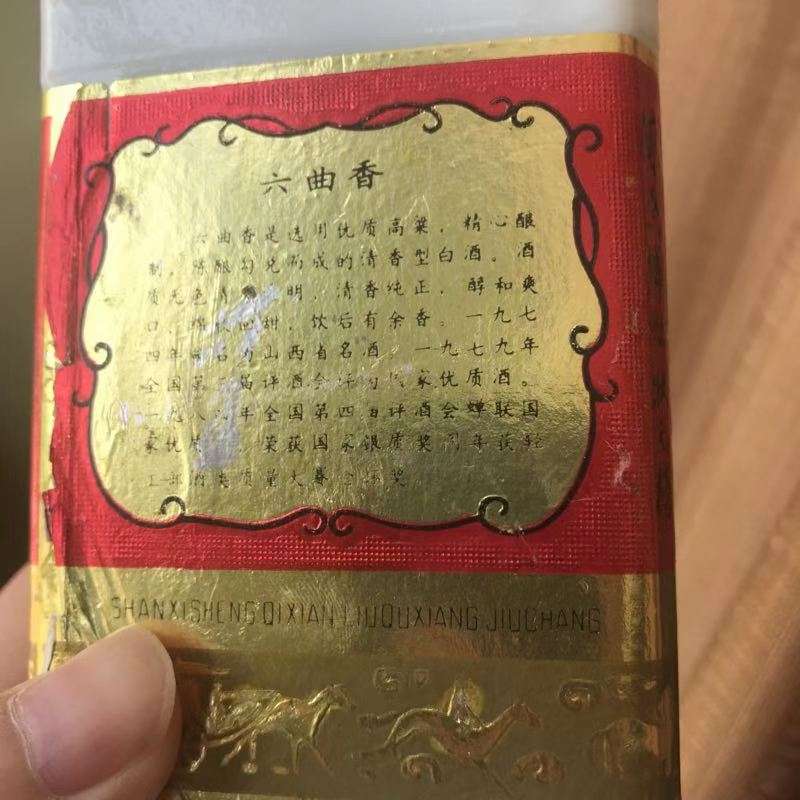 六曲香
六曲香是选用优质高粱，精心酿
制，勾兑而成的清香型白酒。酒
质无色清 明，清香纯正，醇和爽
口， 回甜，饮后有余香。一九七
四年 为山西省名酒，一九七九年
全国第 届评酒会评为国家优质酒。
一九八 年全国第四届评酒会蝉联国
家优质 ，荣获国家银质奖同年获轻
工 部 类质量大赛金 奖
SHANXISHENG QIXIAN LIUQUXIANG JIUCHANG